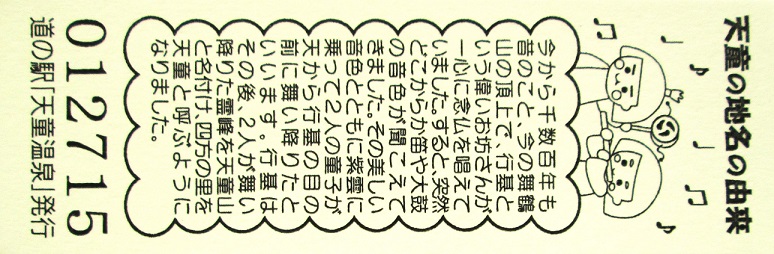 天童の地名の由来
今から千数百年も
昔のこと、今の舞鶴
山の頂上で、行基と
いう偉いお坊さんが
一心に念仏を唱えて
いました。すると、突然
どこからか笛や太鼓
の音色が聞こえて
きました。その美しい
音色とともに紫雲に
乗って2人の童子が
天から行基の目の
前に舞い降りたと
いいます。行基は
その後、2人が舞い
降りた霊峰を天童山
と名付け、四方の里を
天童と呼ぶように
なりました。
012715
道の駅「天童温泉」発行